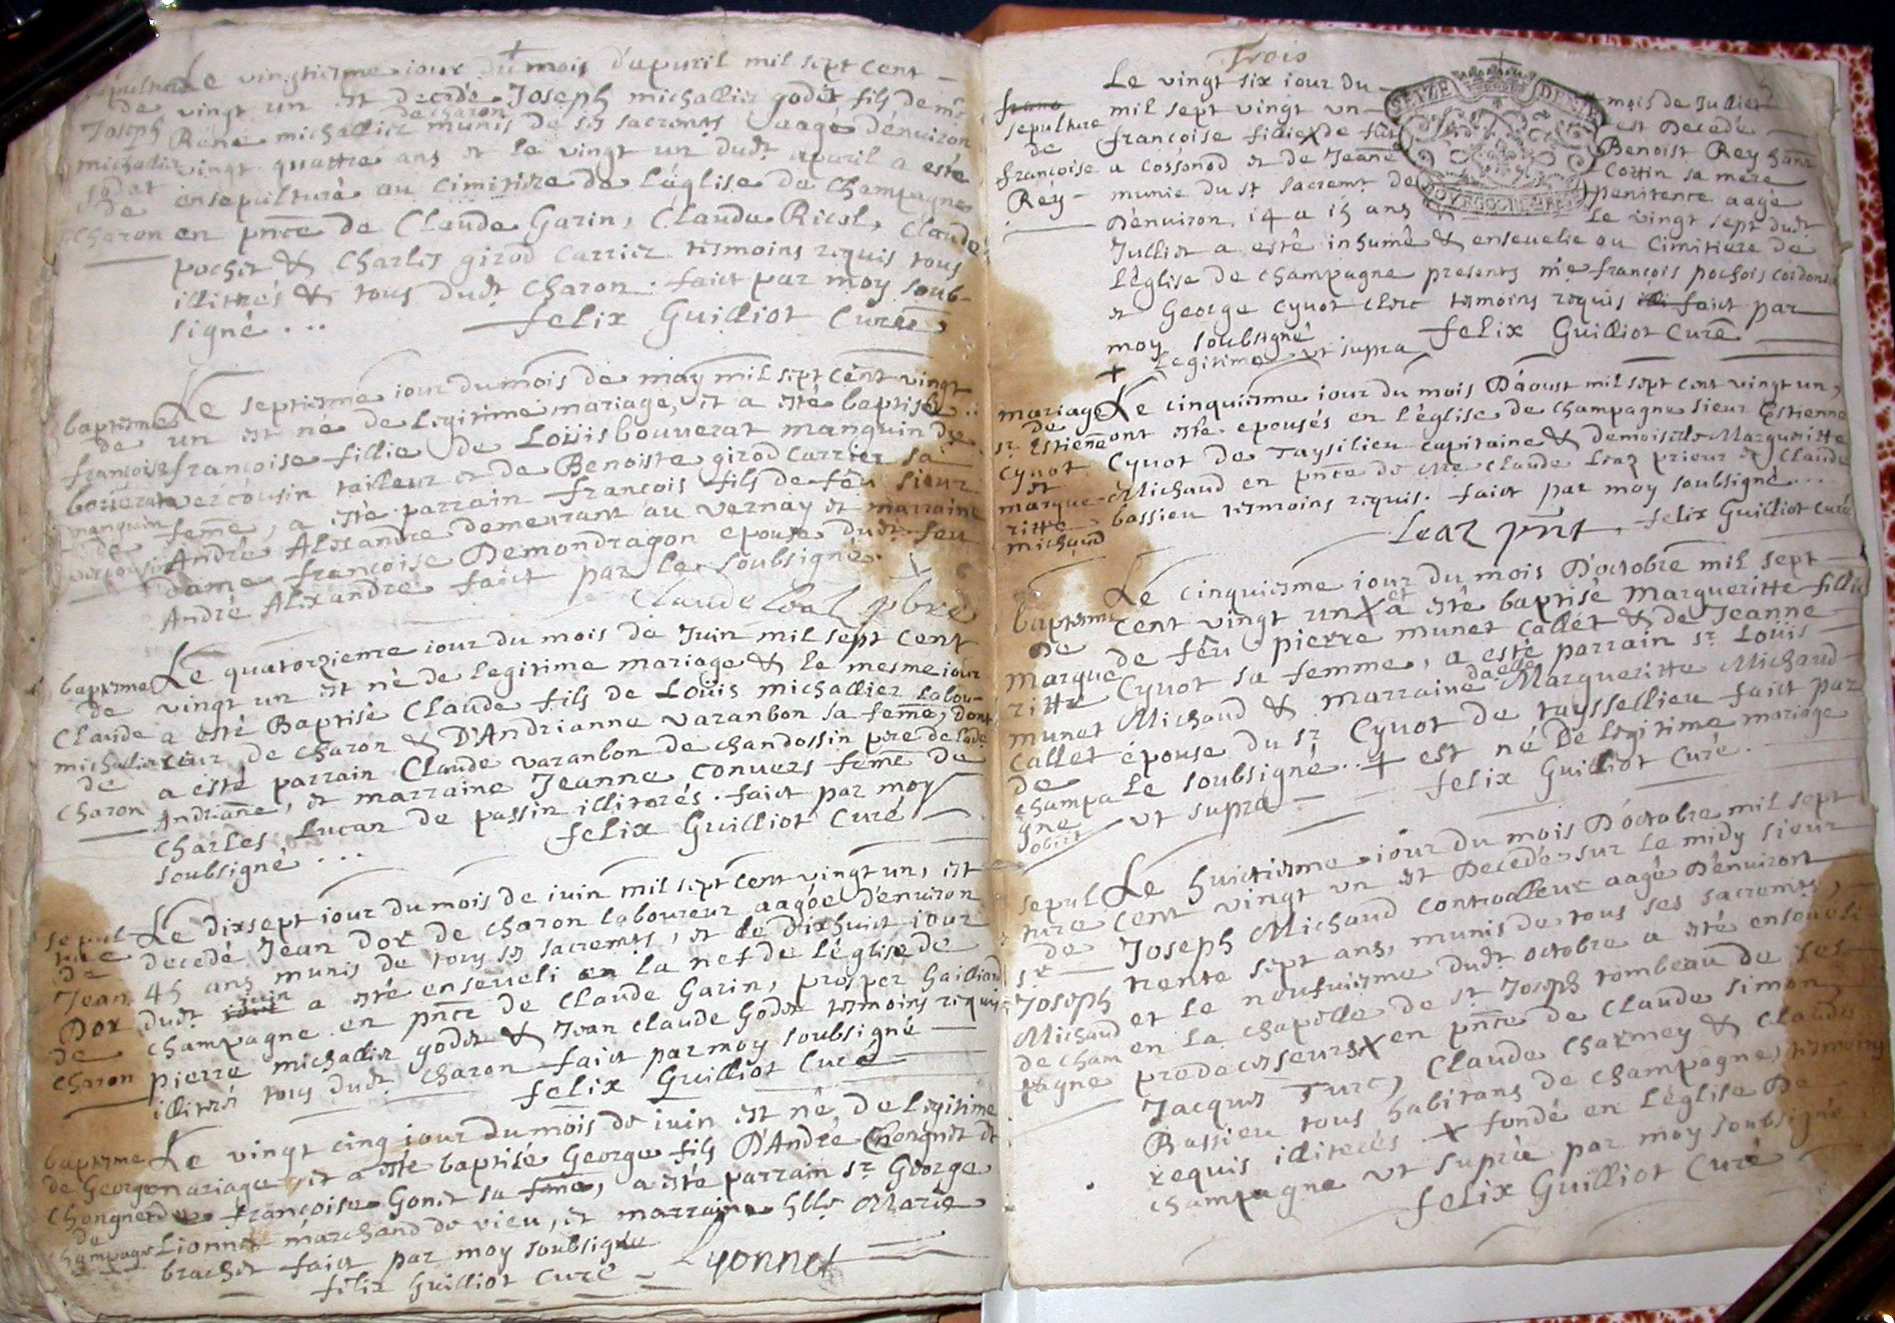 sepulture
de
Joseph
michallier
godet
de
charon
Le vingtiesme iour du mois d'apuril mil sept cent
vingt un est decedé Joseph michallier godet fils de
René michallier de charon munis de ses sacremts aagé d'enuiron
vingt quattre ans et le vingt un dudt apuril a esté
ensepulturé au cimitiere de l'eglise de champagne
en pñce de Claude Garin, Claude Ricol, Claude
pochet & Charles girod Carrier tesmoins requis tous
illitrés & tous dudt Charon. faict par moy soub-
signé ...
felix Guilliot Curé
baptesme
de
françoise
bouuerat
manquin
de
vercousin
Le septiesme iour du mois de may mil sept cent vingt
un est né de legitime mariage, et a esté baptisé
françoise fillie de Loüis bouuerat manquin de
vercousin tailleur et de Benoiste girod Carrier sa
feme, a esté parrain françois fils de feu sieur
André Alexandre demeurant au vernay et marraine
dame françoise Demondragon epouse dudt feu
André Alixandre faict par le soubsigné.
Claude Leal pbre
baptesme
de
Claude
michalier
de
Charon
Le quatorzieme iour du mois de Juin mil sept cent
vingt un est né de legitime mariage & le mesme iour
a esté Baptisé Claude fils de Loüis michallier labou-
reur de charon & D'Andrianne varanbon sa feme, dont
a esté parrain Claude varanbon de chandossin pere de ladte
Andriane, et marraine Jeanne Convers feme de
Charles Lucan de passin illiterés. faict par moy
soubsigné ...
felix Guilliot Curé
sepul
ture
de
Jean
Dor
de
Charon
Le dixsept iour du mois de iuin mil sept cent vingt un, est
decedé Jean Dor de Charon laboureur aagée d'enuiron
45 ans munis de tous ses sacremts, et le dixhuict iour
dudt juin a esté enseueli en la nef de l'église de
champagne en pñce de Claude Garin, prosper Gailliard
pierre michallier godet & Jean Claude Godet tesmoins requis
illiterés tous dudt charon faict par moy soubsigné
felix Guilliot Curé
baptesme
de George
Chongnerd
de
Champagne
Le vingt cinq iour du mois de iuin est né de legitime
mariage, et a esté baptisé George fils D'André Chongnet et
de françoise Gonet sa feme, a esté parrain sr George
Lionnet marchand de vieu, et marraine hlle Marie
brachet faict par moy soubsigné
felix Guilliot Curé
Lyonnet
Trois
SEIZE DEN
franc
sepulture
de
françoise
Réy
Le vingt six iour du mois de Julliet
mil sept vingt un est Decedé
françoise fillie de fût Benoist Rey
a Cossonod et de Jeane Cottin sa mere
munie du st sacremt de penitence aagé
D'enuiron 14 a 15 ans Le vingt sept dudt
Julliet a esté inhumé & enseuelie au Cimitiere de
l'église de champagne presents me françois pochois cordonier
et George Cyuot clerc tesmoins requis faict par
moy soubsigné felix Guilliot Curé
+ legitime ut supra
mariage
de
sr Estiene
Cyuot
et
margue-
ritte
michaud
Le cinquiesme iour du mois D'aoust mil sept cent vingt un,
ont esté epousés en l'église de champagne sieur Estienne
Cyuot de Taysilieu capitaine & demoiselle Margueritte
Michaud en pñce de Me Claude Leaz prieur et Claude
bassieu tesmoins requis. faict par moy soubsigné ...
Leaz pnt. felix Guilliot Curé
baptesme
de
margue
ritte
munet
Callet
de
champa
gne
obiit
Le cinquiesme iour du mois D'octobre mil sept
cent vingt un X et a esté baptisé margueritte fillie
de feu pierre munet Callet & de Jeanne
Cyuot sa femme, a esté parrain sr Loüis
Michaud & marraine dalle Margueritte Michaud
épouse du sr Cyuot de tayssellieu faict par
Le soubsigné .. + est né De legitime mariage
ut supra felix Guilliot Curé.
sepul
ture
de
sr
Joseph
Michaud
de cham
pagne
Le huictiesme iour du mois D'octobre mil sept
cent vingt un est Decedé sur le midy sieur
Joseph Michaud Controlleur aagé D'enuiront
trente sept ans, munis de tous ses sacremts,
et le neufuiesme dudt octobre a esté enseueli
en la chapelle de st Joseph tombeau de ses
predecesseurs X en pñce de Claude Simon,
Jacques Turc, Claude Charmey & Claude
Bassieu tous habitans de Champagne, tesmoins
requis illiterés X fondé en l'église De
champagne ut supra par moy soubsigné
felix Guilliot Curé